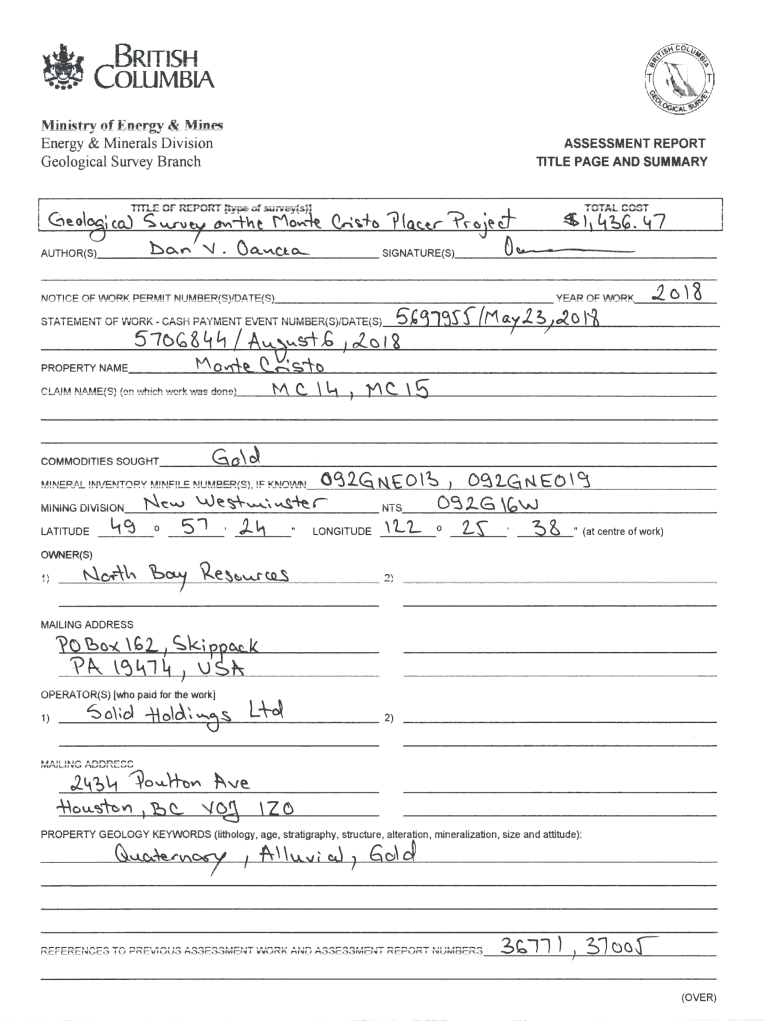 BRITISH
COLUMBIA
BRITISH COLUMBIA
GEOLOGICAL SURVEY
Ministry of Energy & Mines
Energy & Minerals Division
Geological Survey Branch
ASSESSMENT REPORT
TITLE PAGE AND SUMMARY
TITLE OF REPORT [type of survey(s)] TOTAL COST
Geological Survey on the Monte Cristo Placer Project $1,436.47
AUTHOR(S) Dan V. Oancea SIGNATURE(S)
NOTICE OF WORK PERMIT NUMBER(S)/DATE(S) YEAR OF WORK 2018
STATEMENT OF WORK - CASH PAYMENT EVENT NUMBER(S)/DATE(S) 5697955/May 23, 2018
5706844/August 6, 2018
PROPERTY NAME Monte Cristo
CLAIM NAME(S) (on which work was done) MC14, MC15
COMMODITIES SOUGHT Gold
MINERAL INVENTORY MINFILE NUMBER(S), IF KNOWN 092GNE013, 092GNE019
MINING DIVISION New Westminster NTS 092G16W
LATITUDE 49 ° 57 ' 24 " LONGITUDE 122 ° 25 ' 38 " (at centre of work)
OWNER(S)
1) North Bay Resources 2)
MAILING ADDRESS
PO Box 162, Skippack
PA 19474, USA
OPERATOR(S) [who paid for the work]
1) Solid Holdings Ltd 2)
MAILING ADDRESS
2434 Poulton Ave
Houston, BC V0J 1Z0
PROPERTY GEOLOGY KEYWORDS (lithology, age, stratigraphy, structure, alteration, mineralization, size and attitude):
Quaternary, Alluvial, Gold
REFERENCES TO PREVIOUS ASSESSMENT WORK AND ASSESSMENT REPORT NUMBERS 36771, 37005
(OVER)